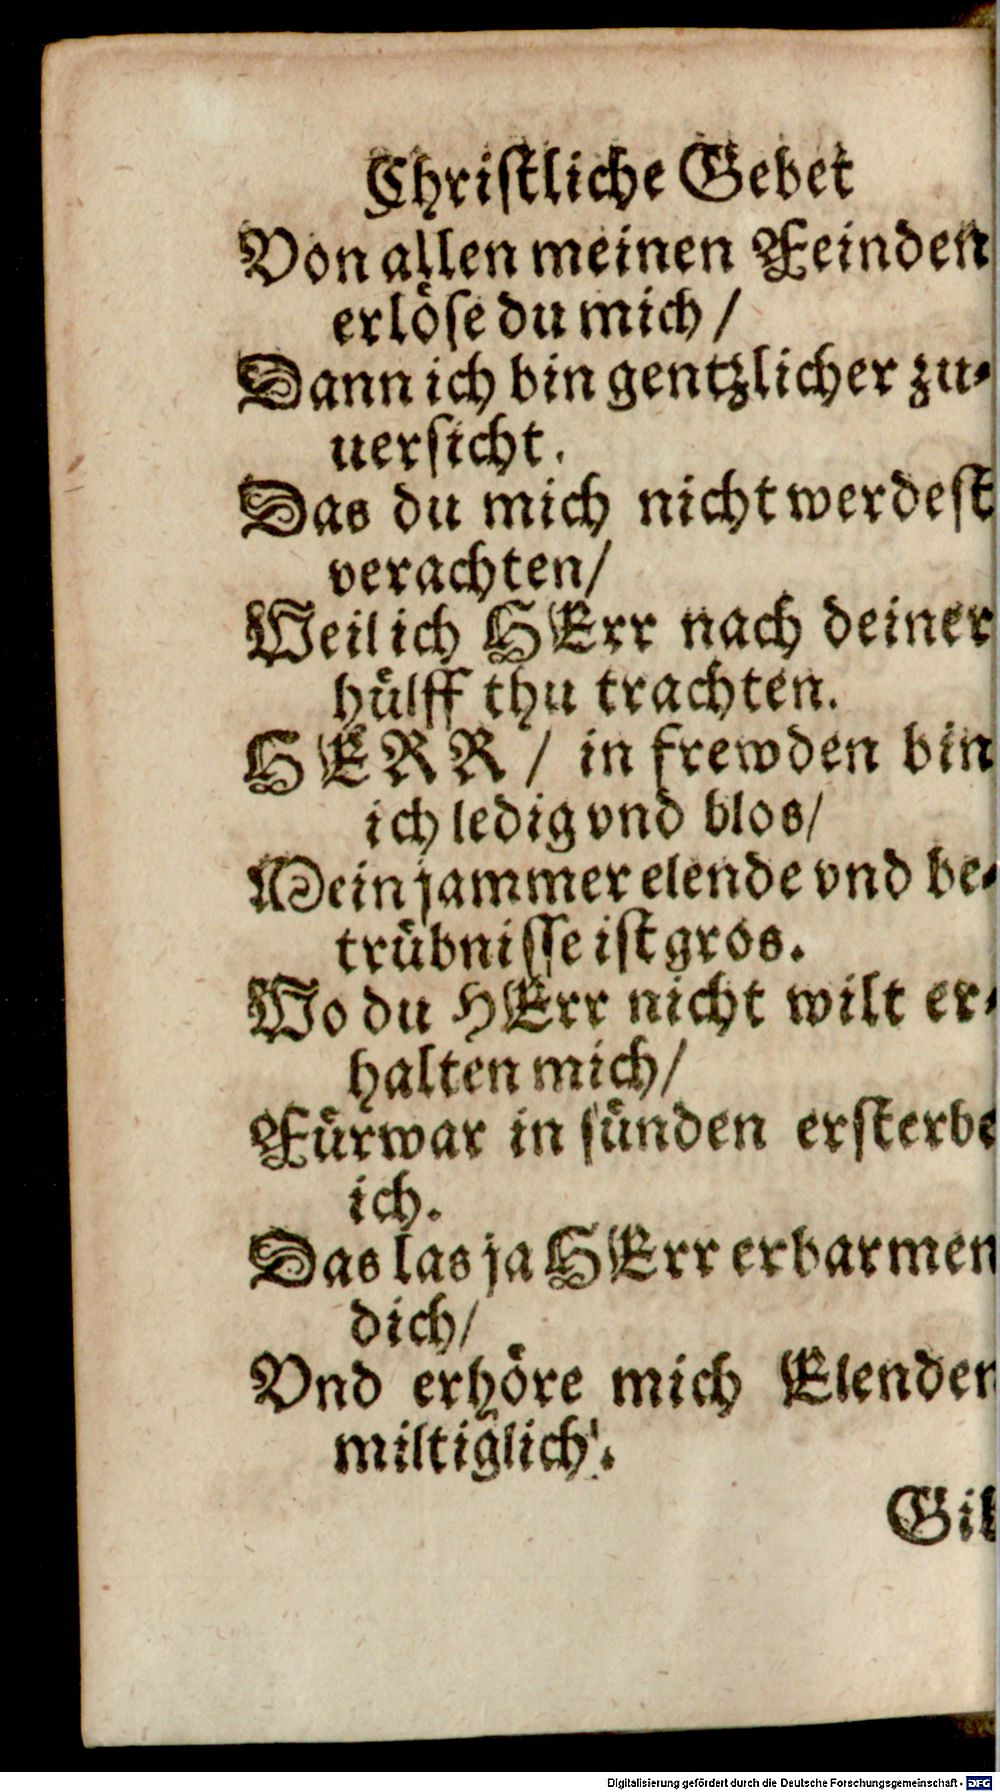 Christliche Gebet
Von allen meinen Feinden
erlöse du mich /
Dann ich bin gentzlicher zu-
uersicht.
Das du mich nicht werdest
verachten/
Weil ich HErr nach deiner
hülff thu trachten.
HERR / in frewden bin
ich ledig vnd blos/
Mein jammer elende vnd be-
trübnisse ist gros.
Wo du HErr nicht wilt er-
halten mich/
Fürwar in sünden ersterbe
ich.
Das las ja HErr erbarmen
dich/
Vnd erhöre mich Elenden
miltiglich.
Gib
Digitalisierung gefördert durch die Deutsche Forschungsgemeinschaft - DFG